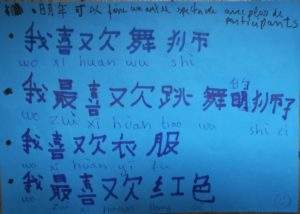 明年可以 faire un autre spectacle avec plus de participants
我喜欢舞狮
wo xi huan wu shi
我最喜欢跳舞的狮子
wo zui xi huan tiao wu shi zi
我喜欢衣服
wo xi huan yi fu
我最喜欢红色
wo xi huan